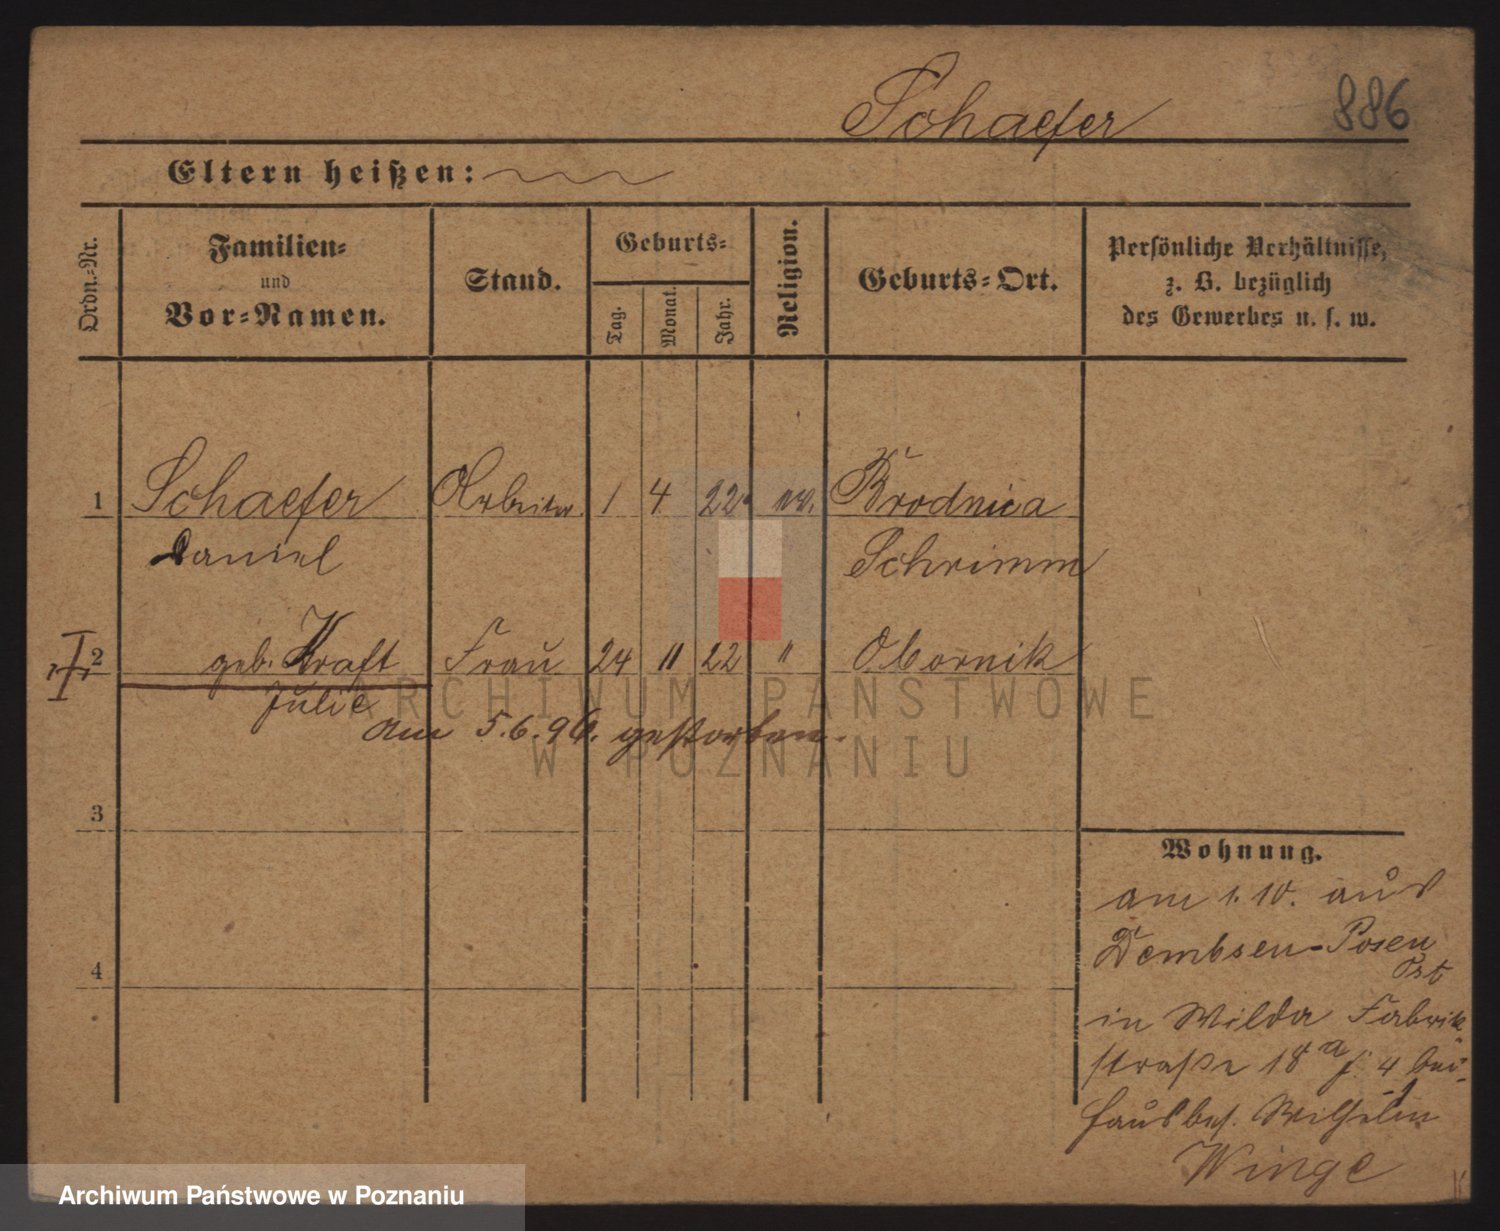 Schaefer 886
Eltern heißen:
Ordn.-Nr.
Familien-
und
Vor-Namen.
Stand.
Geburts-
Tag.
Monat.
Jahr.
Religion.
Geburts-Ort.
Persönliche Verhältnisse,
z. B. bezüglich
des Gewerbes u. s. w.
1 Schaefer Arbeiter 1 4 22 ev. Brodnica
Daniel Schrimm
2 geb. Kraft Frau 24 11 22 " Obornik
Julie
am 5.6.96. gestorben.
3
4
Wohnung.
am 1.10. aus
Dembsen-Posen
Ost
in Wilda Fabrik
straße 18a j. 4 bei
Hausbes. Wilhelm
Winge
ARCHIWUM PAŃSTWOWE
W POZNANIU
Archiwum Państwowe w Poznaniu